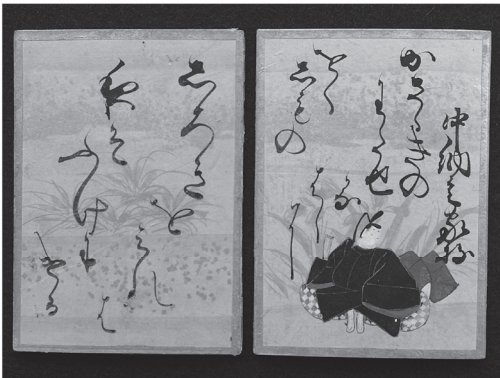 中納言家持
かさゝきの
わたせ
る
はし
に
をく
しもの
しろき
を
みれ
は
夜そ
ふけに
ける